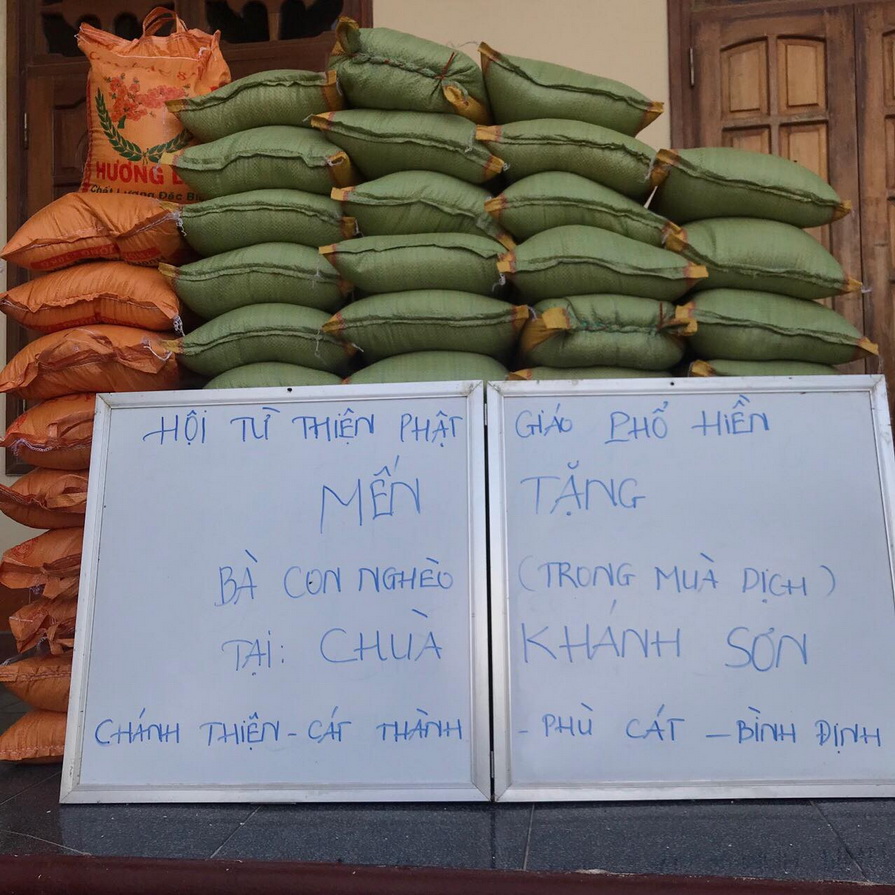 HƯƠNG
Chất Lượng Đặc
HỘI TỪ THIỆN PHẬT GIÁO PHỔ HIỀN
MẾN TẶNG
BÀ CON NGHÈO (TRONG MUÀ DỊCH)
TẠI: CHUÀ KHÁNH SƠN
CHÁNH THIỆN - CÁT THÀNH - PHÙ CÁT - BÌNH ĐỊNH